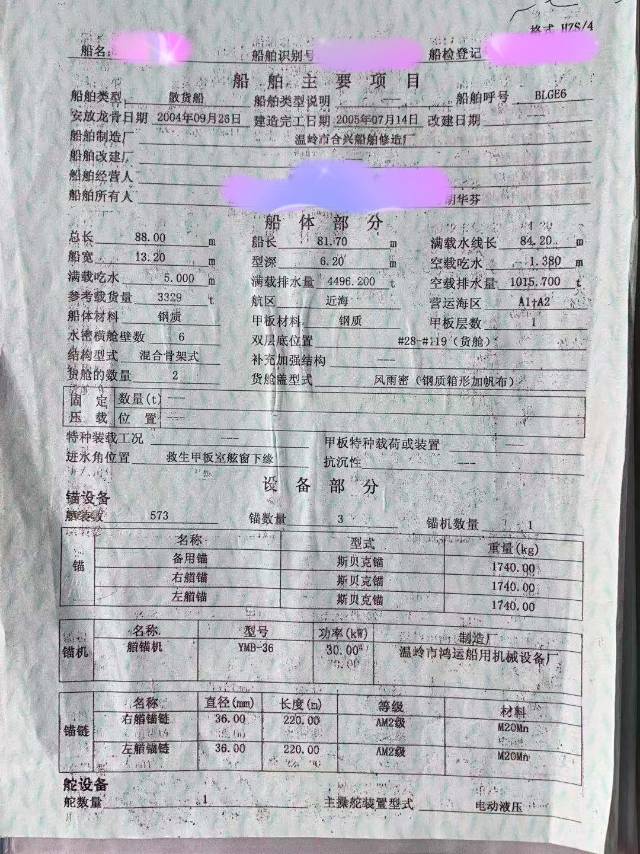 格式 HZS/4
船名 船舶识别号 船检登记
船舶主要项目
船舶类型 散货船 船舶类型说明 —— 船舶呼号 BLGE6
安放龙骨日期 2004年09月23日 建造完工日期 2005年07月14日 改建日期 ——
船舶制造厂 温岭市合兴船舶修造厂
船舶改建厂
船舶经营人
船舶所有人 华芬
船体部分
总长 88.00 m 船长 81.70 m 满载水线长 84.20 m
船宽 13.20 m 型深 6.20 m 空载吃水 1.380 m
满载吃水 5.000 m 满载排水量 4496.200 t 空载排水量 1015.700 t
参考载货量 3329 t 航区 近海 营运海区 A1+A2
船体材料 钢质 甲板材料 钢质 甲板层数 1
水密横舱壁数 6 双层底位置 #28-#119（货舱）
结构型式 混合骨架式 补充加强结构 ——
货舱的数量 2 货舱盖型式 风雨密（钢质箱形加帆布）
固定 数量(t) ——
压载 位置 ——
特种装载工况 —— 甲板特种载荷或装置 ——
进水角位置 救生甲板室舷窗下缘 抗沉性 ——
设备部分
锚设备
舾装数 573 锚数量 3 锚机数量 1
锚 名称 型式 重量(kg)
备用锚 斯贝克锚 1740.00
右艏锚 斯贝克锚 1740.00
左艏锚 斯贝克锚 1740.00
锚机 名称 型号 功率(kW) 制造厂
艏锚机 YMB-36 30.00 温岭市鸿运船用机械设备厂
锚链 名称 直径(mm) 长度(m) 等级 材料
右艏锚链 36.00 220.00 AM2级 M20Mn
左艏锚链 36.00 220.00 AM2级 M20Mn
舵设备
舵数量 1 主操舵装置型式 电动液压